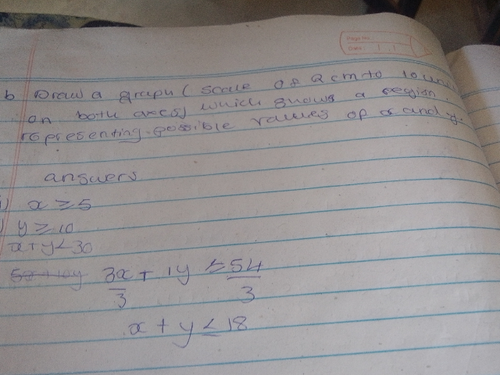 b Draw a graph ( scale of 2cm to 10
on both axes) which shows a region
representing possible values of x and y.
answers
i) x ≥ 5
) y ≥ 10
x + y < 30
3x/3 + 1y ≥ 54/3
x + y ≤ 18